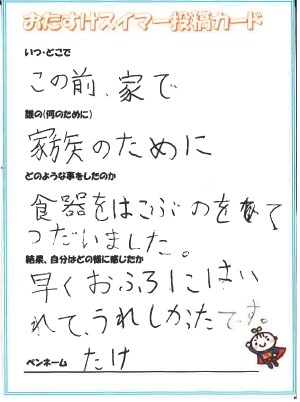 おたすけスイマー投稿カード
いつ・どこで
この前、家で
誰の(何のために)
家族のために
どのような事をしたのか
食器をはこぶのをて
つだいました。
結果、自分はどの様に感じたか
早くおふろにはい
れて、うれしかったです。
ペンネーム たけ